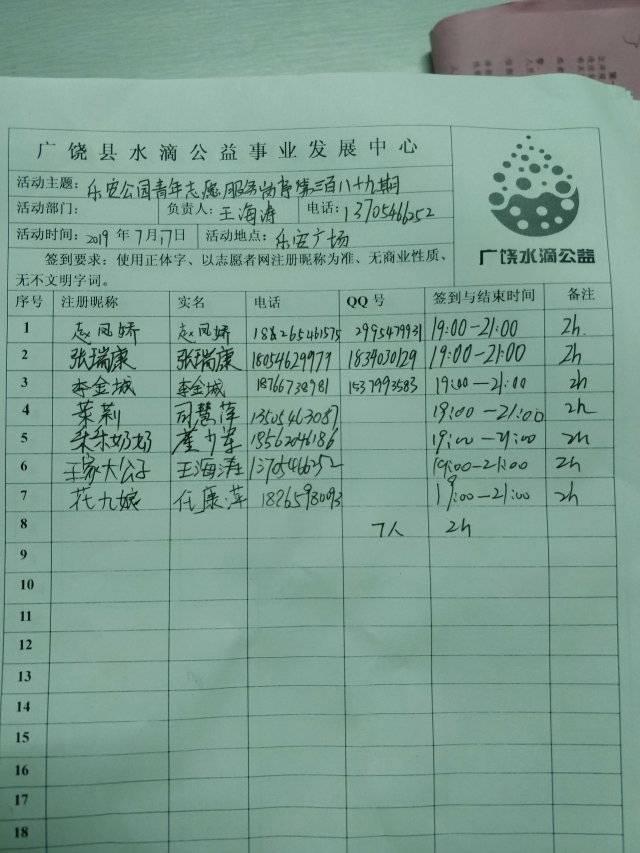 广饶县水滴公益事业发展中心
活动主题: 乐安公园青年志愿服务 第三百八十九期
活动部门: 负责人: 王海涛 电话: 13705466252
活动时间: 2019年7月17日 活动地点: 乐安广场
广饶水滴公益
签到要求：使用正体字、以志愿者网注册昵称为准、无商业性质、
无不文明字词。
序号 注册昵称 实名 电话 QQ号 签到与结束时间 备注
1 赵凤娇 赵凤娇 2995479931 19:00-21:00 2h.
2 张瑞康 张瑞康 18054629979 1834030129 19:00-21:00 2h
3 李金城 李金城 18766738981 1537993583 19:00-21:00 2h
4 茉莉 司慧萍 13505463087 19:00-21:00 2h
5 朵朵奶奶 18562046186 19:00-21:00 2h
6 王家大公子 王海涛 13705466252 19:00-21:00 2h
7 花九娘 任康萍 18265983093 19:00-21:00 2h
8 7人 2h
9
10
11
12
13
14
15
16
17
18